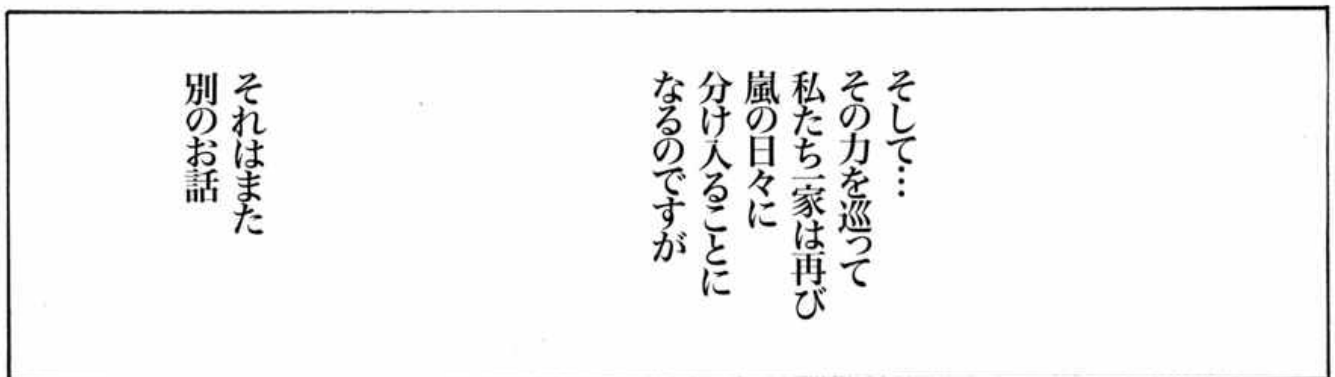 そして…
その力を巡って
私たち一家は再び
嵐の日々に
分け入ることに
なるのですが
それはまた
別のお話